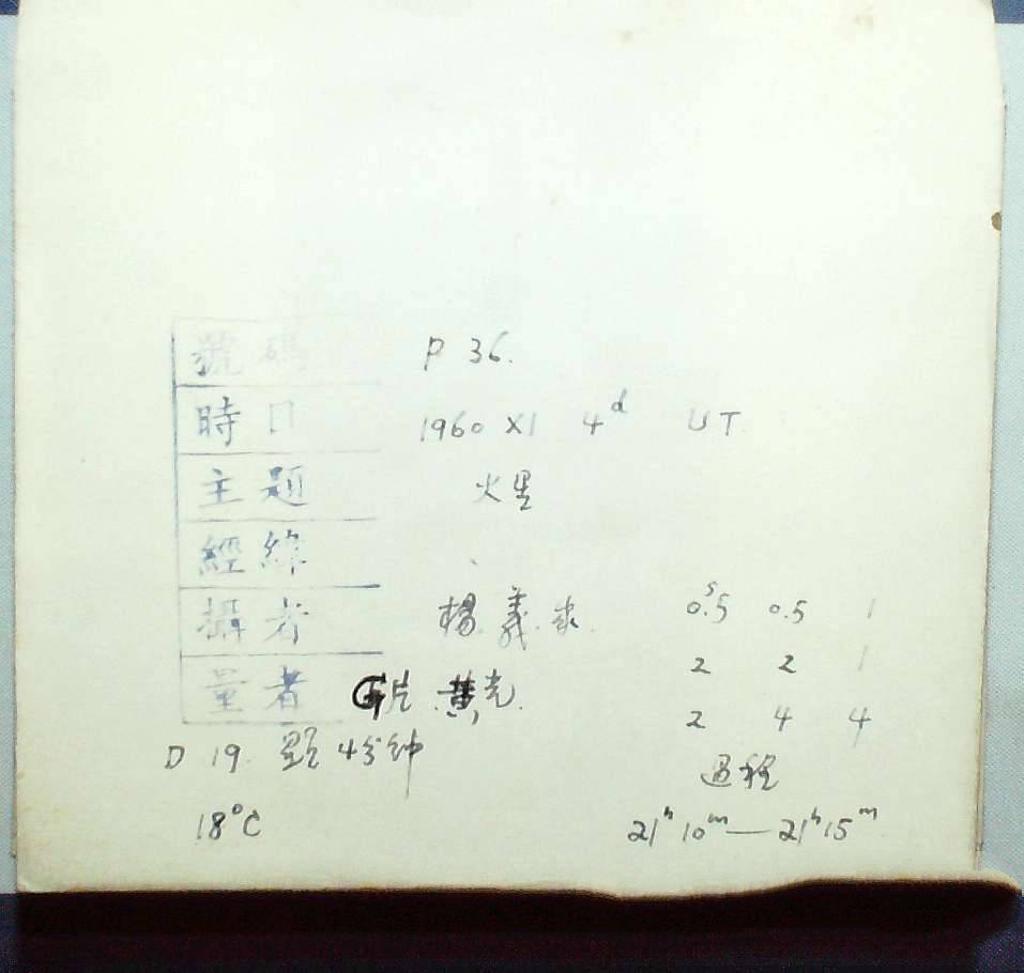 號碼 P 36.
時日 1960 XI 4ᵈ UT
主題 火星
經緯
攝者 楊 義 0.5ˢ 0.5 1
2 2 1
量者 G片 黃光 2 4 4
D 19. 顯 4分钟 過程
18°C 21ʰ10ᵐ—21ʰ15ᵐ